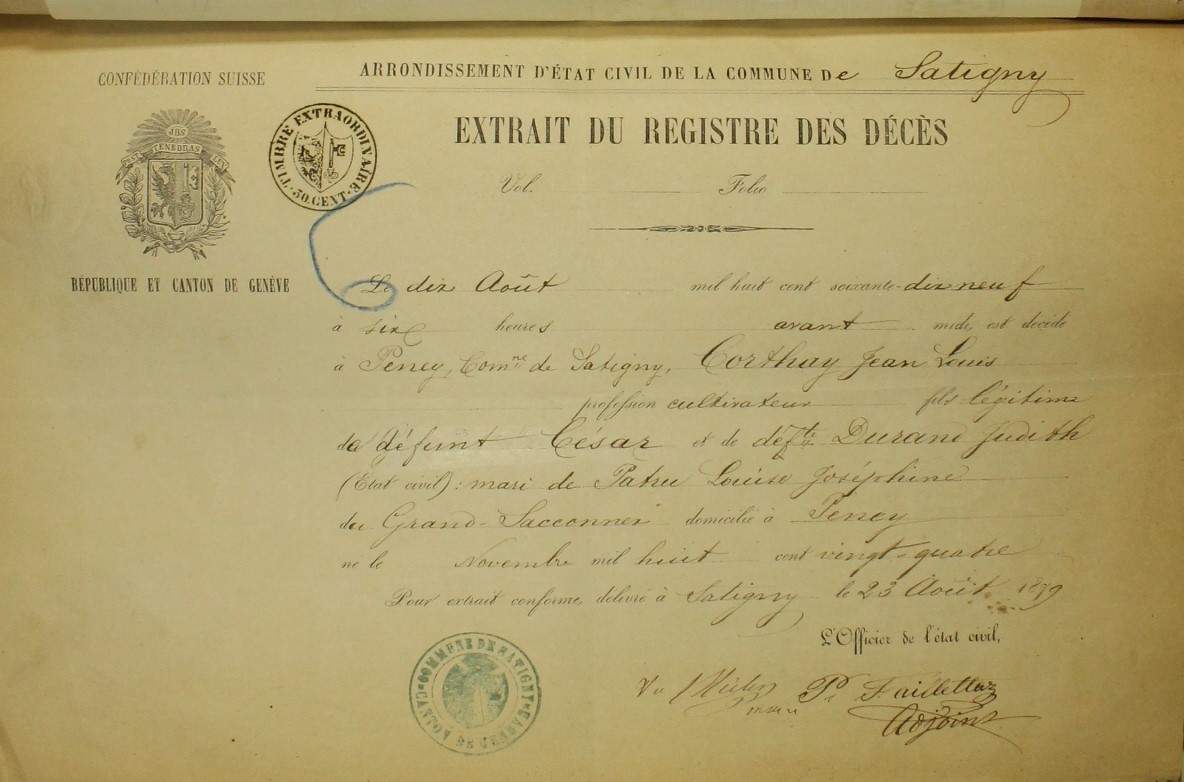 CONFÉDÉRATION SUISSE
ARRONDISSEMENT D'ÉTAT CIVIL DE LA COMMUNE De Satigny
TIMBRE EXTRAORDINAIRE
50 CENT.
POST TENEBRAS LUX
JHS
RÉPUBLIQUE ET CANTON DE GENÈVE
EXTRAIT DU REGISTRE DES DÉCÈS
Vol. Folio
Le dix Août mil huit cent soixante-dix neuf
à six heures avant midi, est décédé
à Peney, Comne de Satigny, Corthay Jean Louis
profession cultivateur fils légitime
de défunt César et de défte Durand Judith
(Etat civil): mari de Patru Louise Joséphine
du Grand-Sacconnex domicilié à Peney
né le Novembre mil huit cent vingt-quatre
Pour extrait conforme, délivré à Satigny le 23 Août 1879
L'Officier de l'état civil,
Vu
maire
Adjoint
COMMUNE DE SATIGNY
CANTON DE GENÈVE